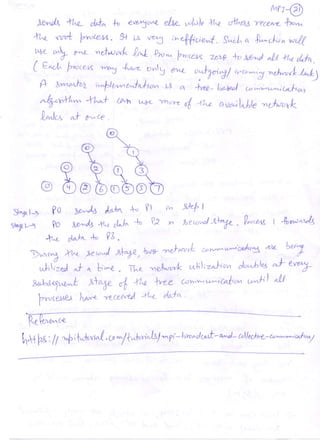 MPI-21
sends the data to everyone else while the others receive from
the root process. It is very inefficient. Such a function will
use only one network link from process zero to send all the data.
(Each process may have only one outgoing/incoming network link)
A smarter implementation is a tree-based communication
algorithm that can use more of the available network
links at once.
0
0 1
0 2 1 3
0 4 2 6 1 5 3 7
Stage 1→ P0 sends data to P1 in step 1
Stage 2→ P0 sends the data to P2 in second stage. Process 1 forwards
the data to P3.
During the second stage, two network communications are being
utilized at a time. The network utilization doubles at every
subsequent stage of the tree communication until all
processes have received the data.
Reference
https://mpitutorial.com/tutorials/mpi-broadcast-and-collective-communication/